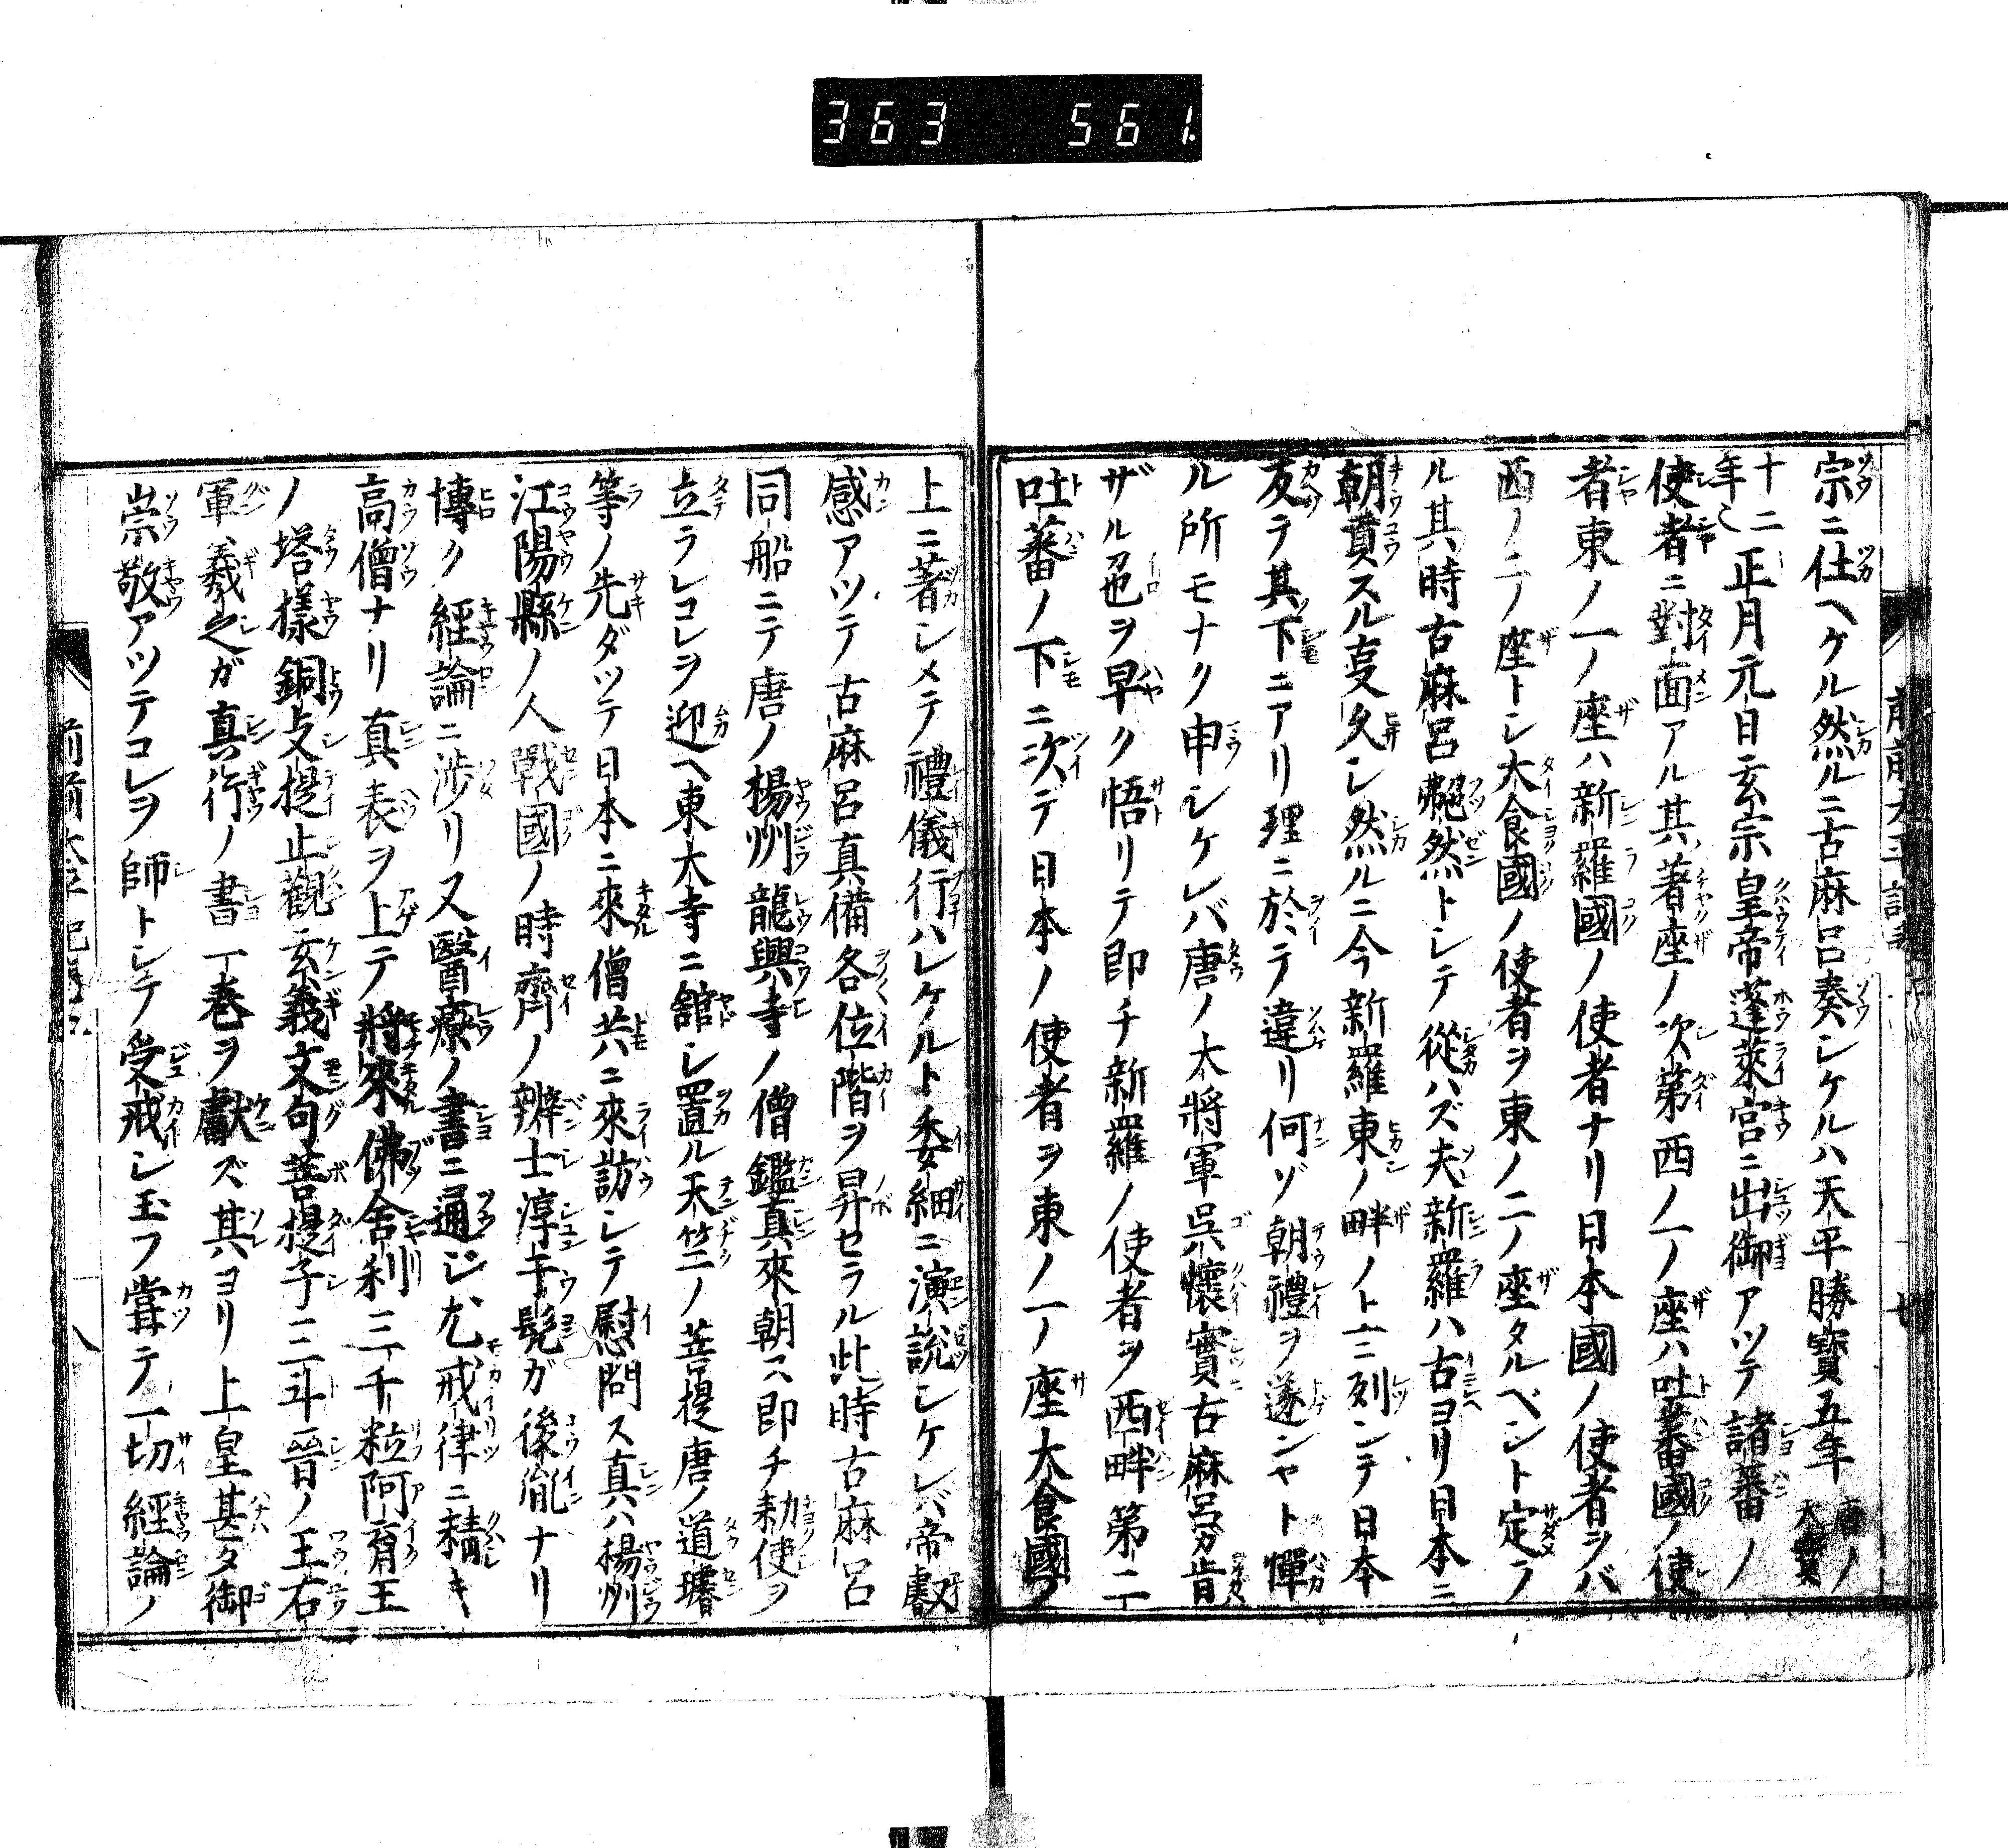 363 561.
宗ニ仕ヘケル然ルニ古麻呂奏シケルハ天平勝寶五年 唐ノ天寶
十二年 正月元日玄宗皇帝蓬萊宮ニ出御アツテ諸蕃ノ
使者ニ對面アル其著座ノ次第西ノ一ノ座ハ吐蕃國ノ使
者東ノ一ノ座ハ新羅國ノ使者ナリ日本國ノ使者ヲバ
西ノ二ノ座トシ大食國ノ使者ヲ東ノ二ノ座タルベシト定ラ
ル其時古麻呂艴然トシテ從ハズ夫新羅ハ古ヨリ日本ニ
朝貢スル叓久シ然ルニ今新羅東ノ畔ノ上ニ列シテ日本
反テ其下ニアリ理ニ於テ違リ何ゾ朝禮ヲ遂ンヤト憚
ル所モナク申シケレバ唐ノ大將軍呉懷實古麻呂ガ肯
ザル色ヲ早ク悟リテ即チ新羅ノ使者ヲ西畔第二
吐蕃ノ下ニ次デ日本ノ使者ヲ東ノ一ノ座大食國ノ
上ニ著シメテ禮儀行ハレケルト委細ニ演說シケレバ帝叡
感アツテ古麻呂真備各位階ヲ昇セラル此時古麻呂
同船ニテ唐ノ楊州龍興寺ノ僧鑑真來朝ス即チ勅使ヲ
立ラレコレヲ迎ヘ東大寺ニ館シ置ル天竺ノ菩提唐ノ道璿
等ノ先ダツテ日本ニ來僧共ニ來訪シテ慰問ス真ハ楊州
江陽縣ノ人戰國ノ時齊ノ辨士淳于髡ガ後胤ナリ
博ク經論ニ涉リ又醫療ノ書ニ通ジ尤戒律ニ精キ
高僧ナリ真表ヲ上テ將來佛舍利三千粒阿育王
ノ塔樣銅攴提止觀玄義文句菩提子三斗晉ノ王右
軍羲之ガ真行ノ書一卷ヲ獻ズ其ヨリ上皇甚タ御
崇敬アツテコレヲ師トシテ受戒シ玉フ甞テ一切經論ノ
前前太平記卷九
八